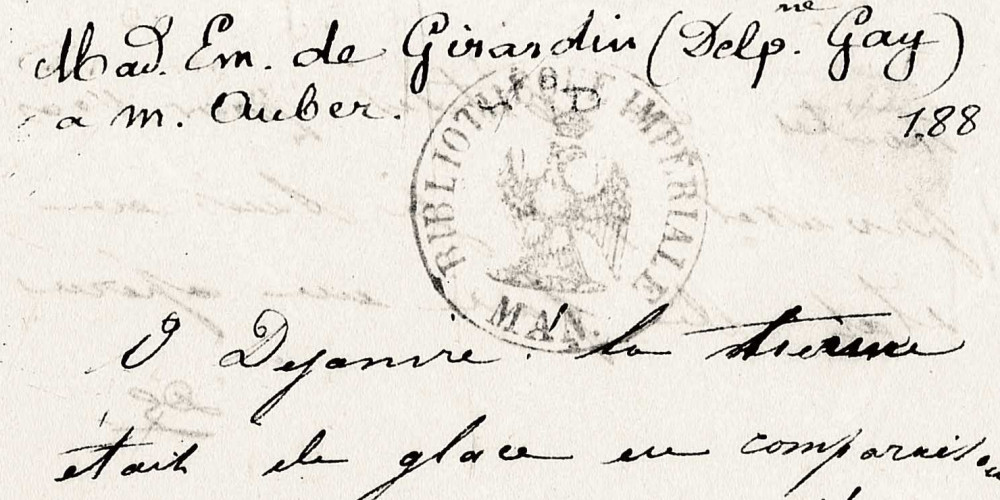 Mad. Em. de Girardin (Delp.ne Gay)
a M. Auber.
188
BIBLIOTHÈQUE IMPÉRIALE
MAN.
O Dejanire! la tienne
était de glace en comparaison